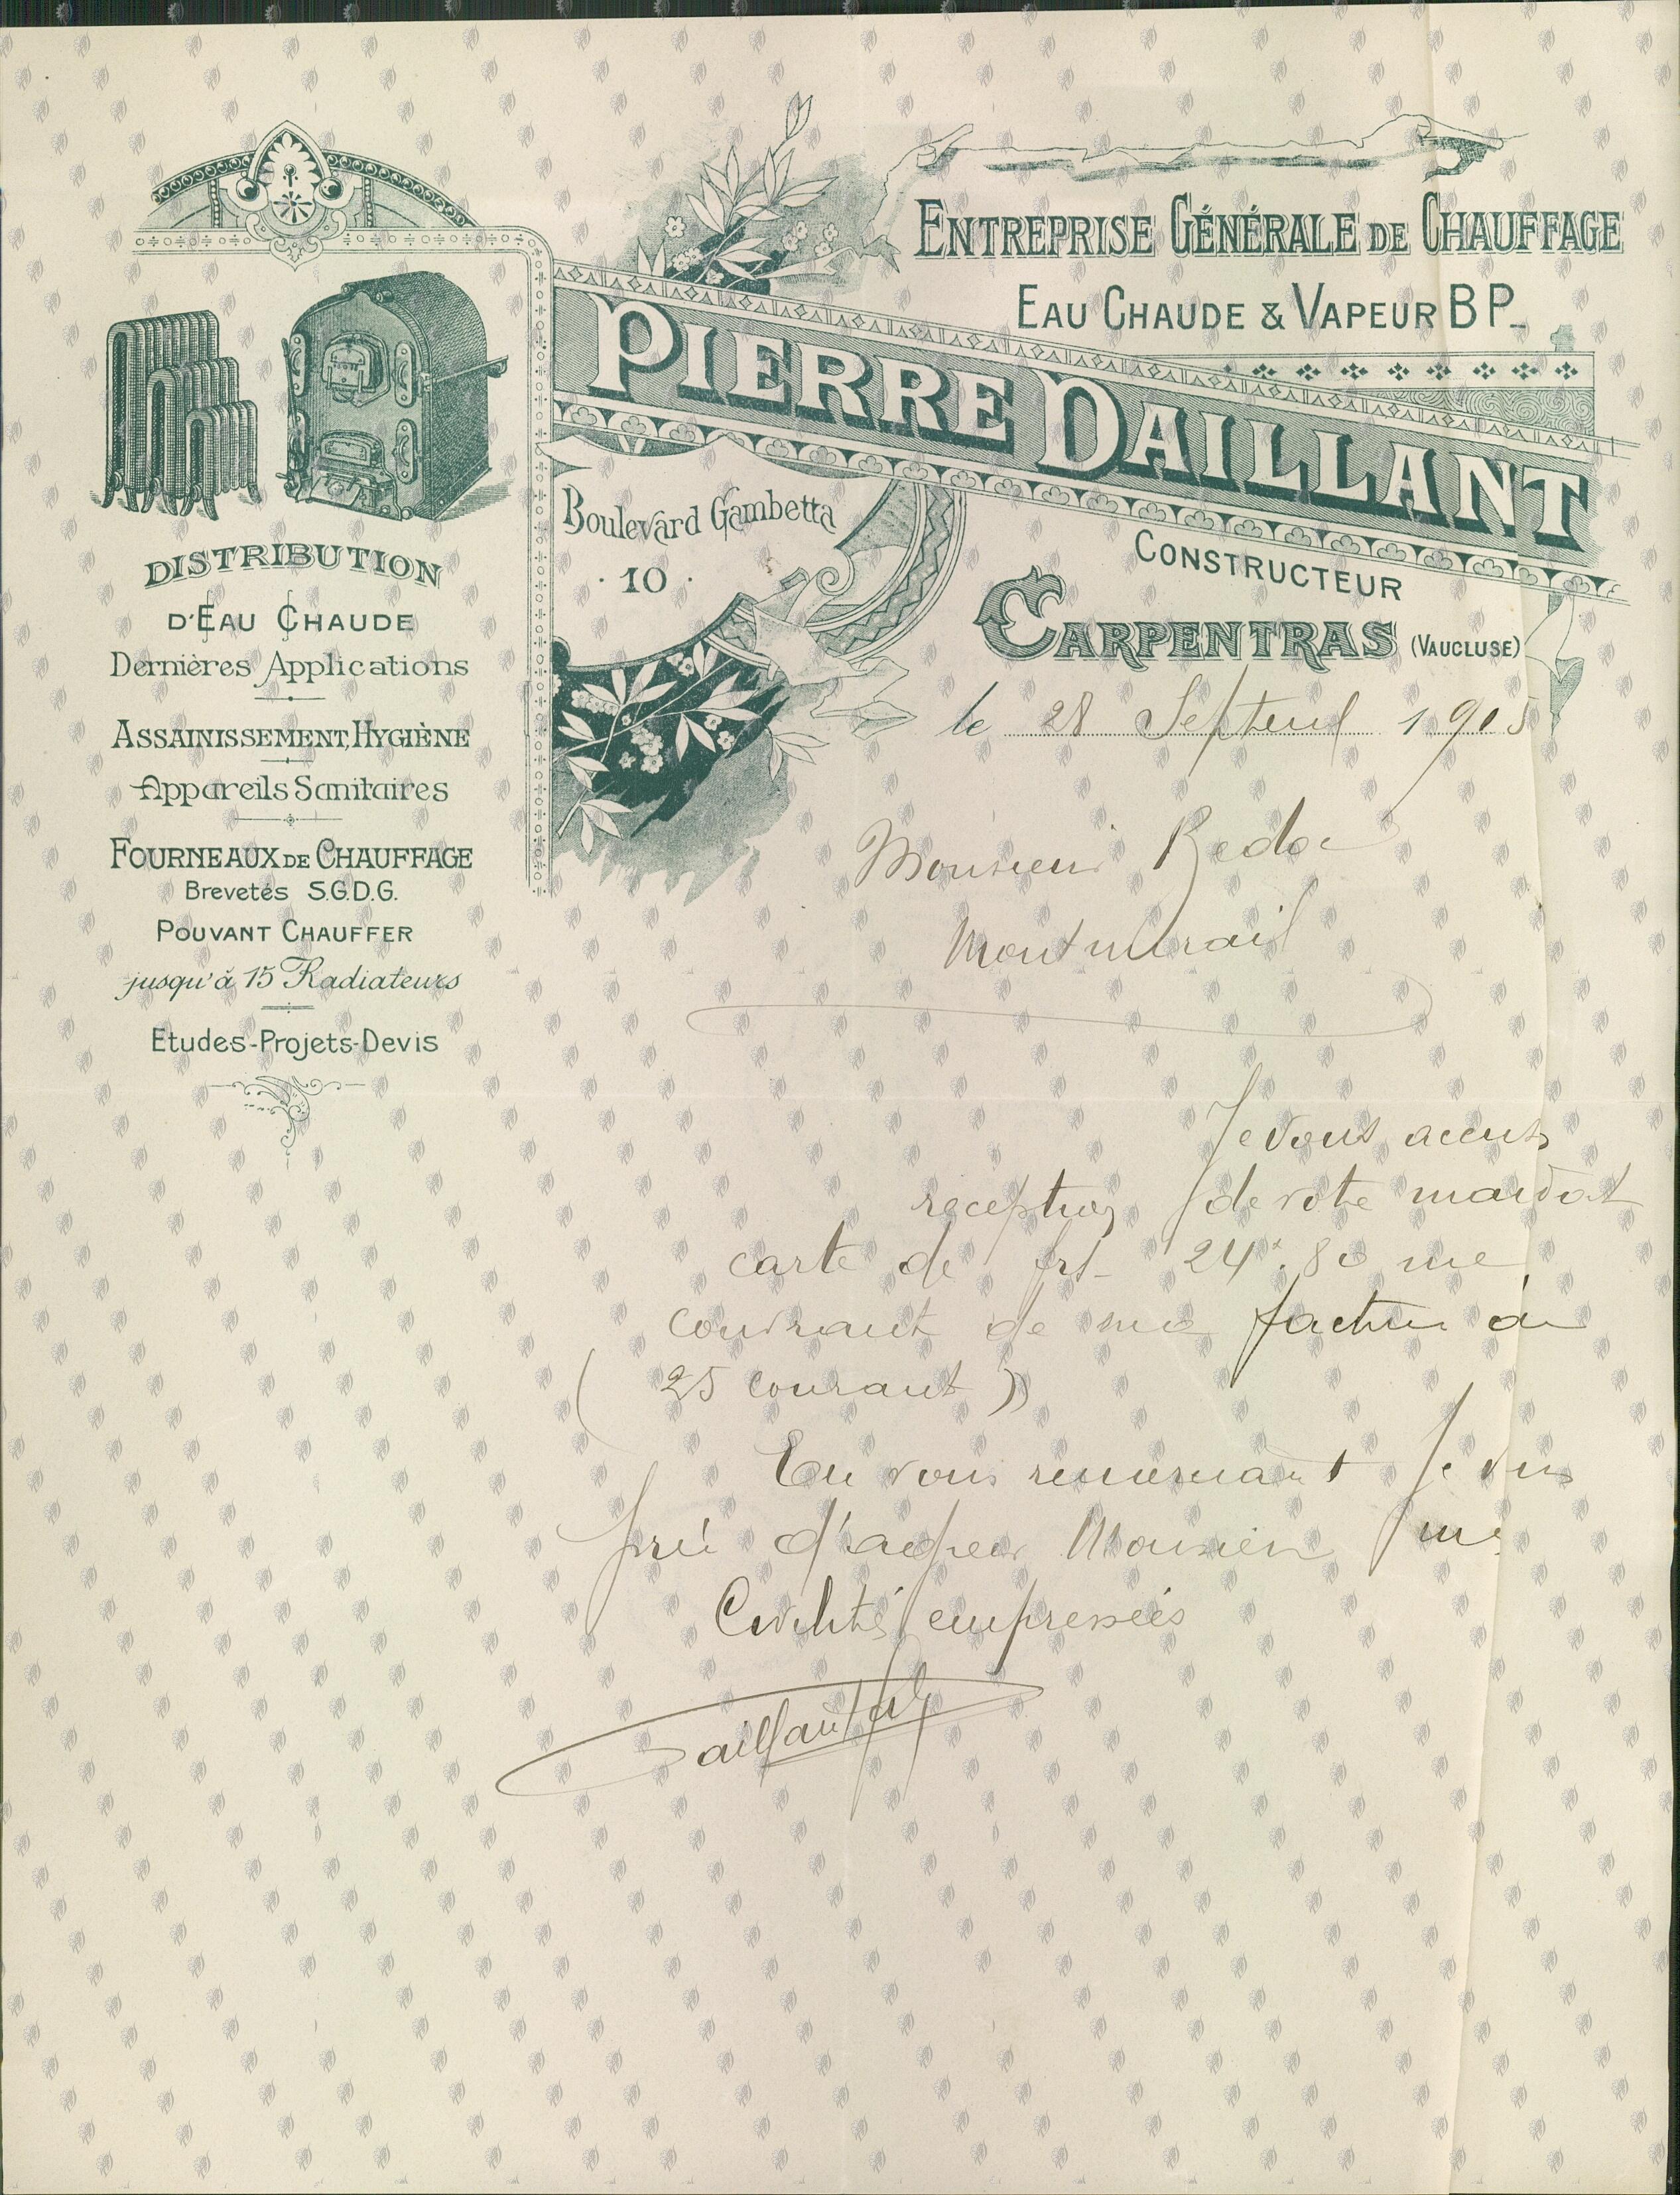 Entreprise Générale de Chauffage
Eau Chaude & Vapeur B P
Pierre Daillant
Constructeur
Boulevard Gambetta
· 10 ·
Carpentras (Vaucluse)
Distribution
d'Eau Chaude
Dernières Applications
Assainissement, Hygiène
Appareils Sanitaires
Fourneaux de Chauffage
Brevetés S.G.D.G.
Pouvant Chauffer
jusqu'à 15 Radiateurs
Etudes-Projets-Devis
le 28 1905
Monsieur
Montmirail
Je vous accuse
reception de votre mandat
carte de frs 24f.80 me
couvrant de ma facture du
(25 courant))
En vous remerciant Je vous
prie d'agréer Monsieur mes
Civilités empressées